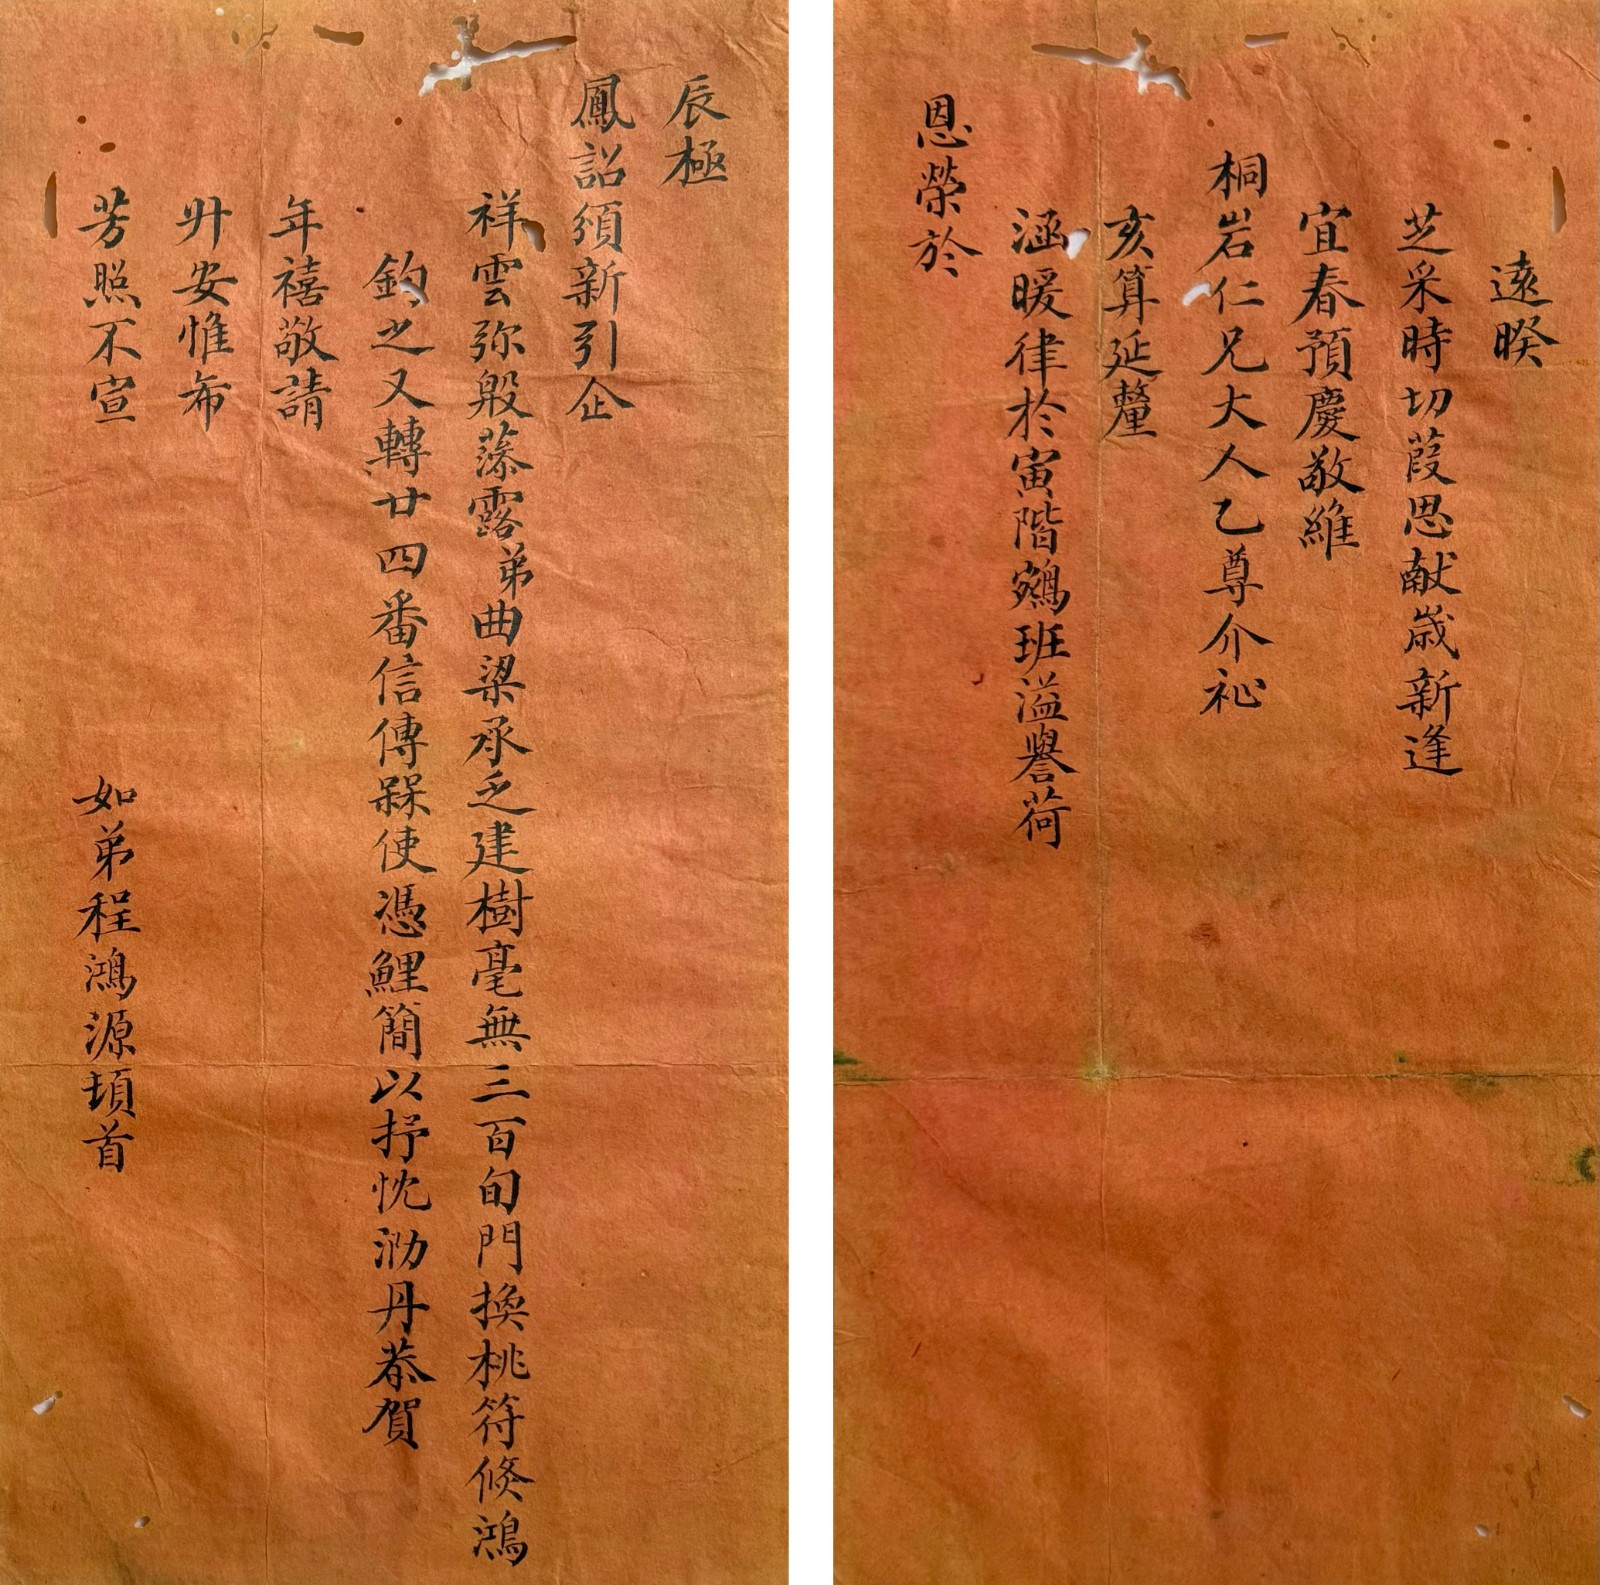 遠暌
芝采時切葭思献歲新逢
宜春預慶敬維
桐岩仁兄大人乙尊介祉
亥算延釐
涵暖律於寅階鵷班溢譽荷
恩榮於
辰極
鳳詔頒新引企
祥雲弥殷蓡露弟曲梁承乏建樹毫無三百旬門換桃符倏鴻
鈞之又轉廿四番信傳槑使憑鯉簡以抒忱泐丹恭賀
年禧敬請
升安惟布
芳照不宣
如弟程鴻源頓首